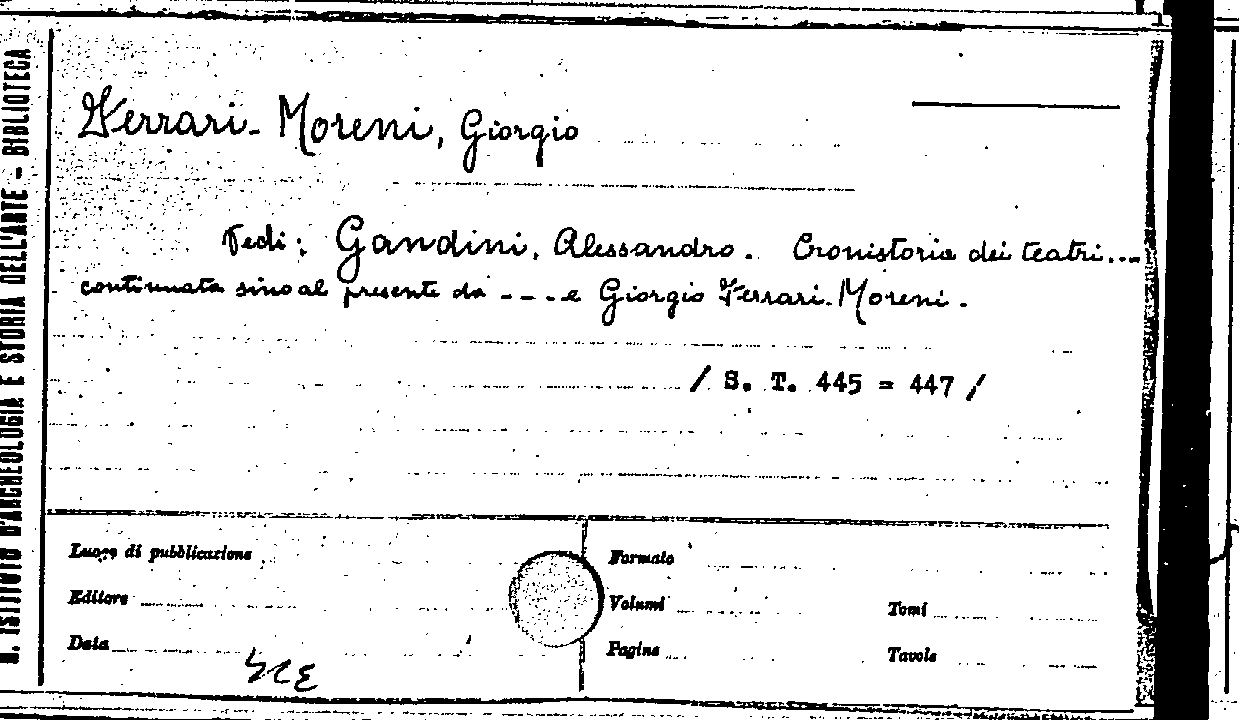 R. ISTITUTO D'ARCHEOLOGIA E STORIA DELL'ARTE - BIBLIOTECA
Ferrari-Moreni, Giorgio
Vedi: Gandini, Alessandro. Cronistoria dei teatri...
continuata sino al presente da ---- e Giorgio Ferrari-Moreni.
/ S. T. 445 = 447 /
Luogo di pubblicazione
Formato
Editore
Volumi
Tomi
Data
Pagine
Tavole